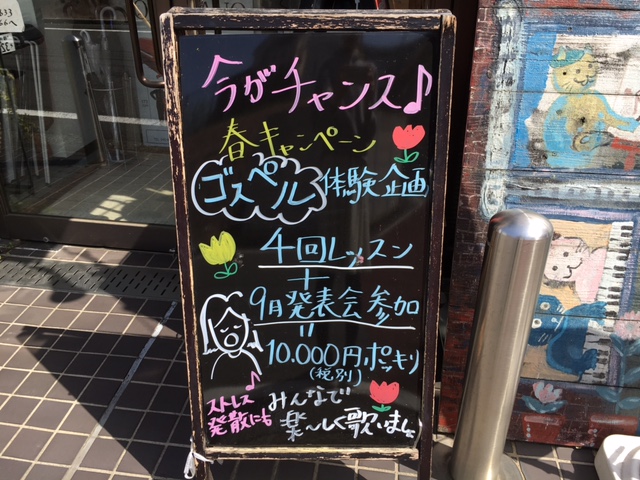 今がチャンス♪
春キャンペーン
ゴスペル体験企画
4回レッスン
+
9月発表会参加
=
10.000円ポッキリ
(税別)
ストレス発散にも♪
みんなで
楽〜しく歌いましょ